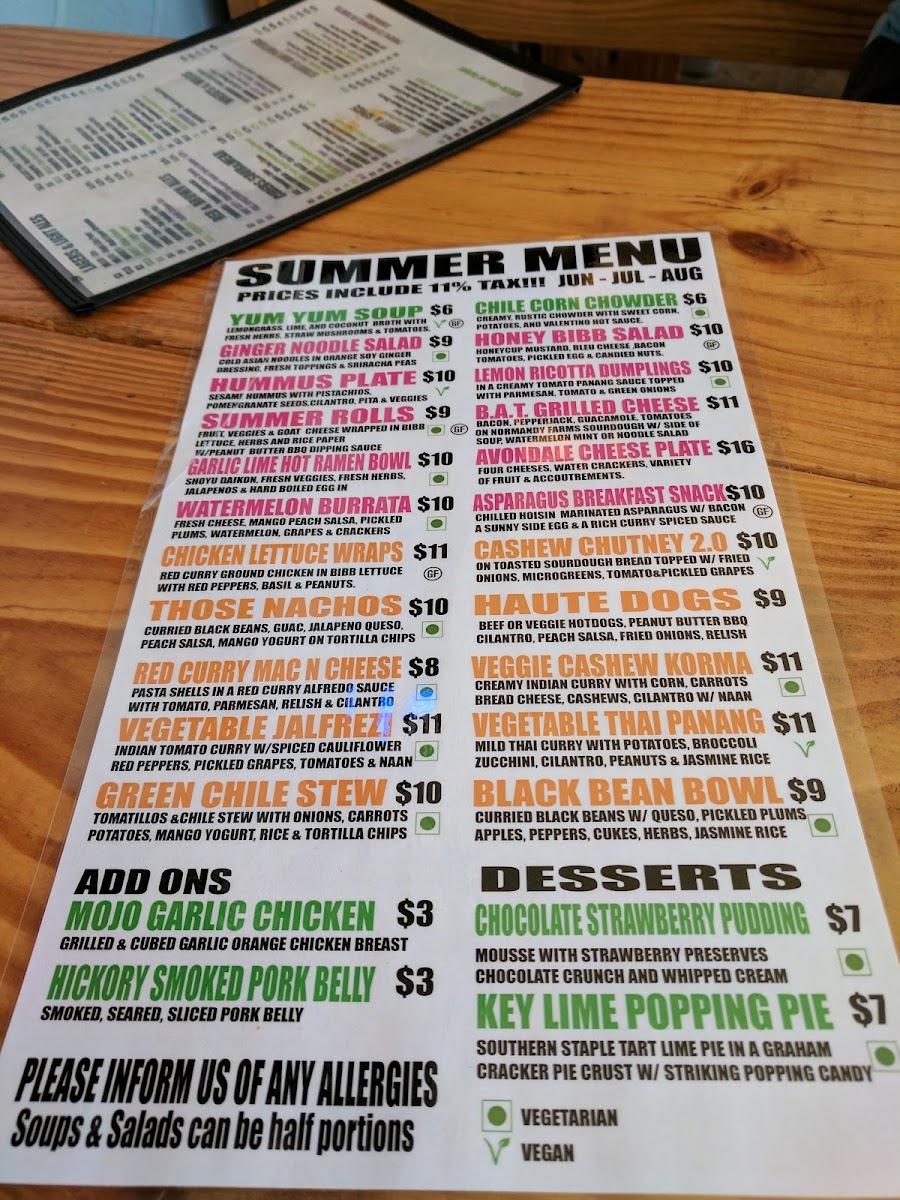 SUMMER MENU
PRICES INCLUDE 11% TAX!!! JUN - JUL - AUG
YUM YUM SOUP $6
LEMONGRASS, LIME, AND COCONUT BROTH WITH
FRESH HERBS, STRAW MUSHROOMS & TOMATOES. GF
GINGER NOODLE SALAD $9
COLD ASIAN NOODLES IN ORANGE SOY GINGER
DRESSING, FRESH TOPPINGS & SRIRACHA PEAS
HUMMUS PLATE $10
SESAME HUMMUS WITH PISTACHIOS,
POMENGRANATE SEEDS, CILANTRO, PITA & VEGGIES
SUMMER ROLLS $9
FRUIT, VEGGIES & GOAT CHEESE WRAPPED IN BIBB GF
LETTUCE, HERBS AND RICE PAPER
W/PEANUT BUTTER BBQ DIPPING SAUCE
GARLIC LIME HOT RAMEN BOWL $10
SHOYU DAIKON, FRESH VEGGIES, FRESH HERBS,
JALAPENOS & HARD BOILED EGG IN
WATERMELON BURRATA $10
FRESH CHEESE, MANGO PEACH SALSA, PICKLED
PLUMS, WATERMELON, GRAPES & CRACKERS
CHICKEN LETTUCE WRAPS $11
RED CURRY GROUND CHICKEN IN BIBB LETTUCE GF
WITH RED PEPPERS, BASIL & PEANUTS.
THOSE NACHOS $10
CURRIED BLACK BEANS, GUAC, JALAPENO QUESO,
PEACH SALSA, MANGO YOGURT ON TORTILLA CHIPS
RED CURRY MAC N CHEESE $8
PASTA SHELLS IN A RED CURRY ALFREDO SAUCE
WITH TOMATO, PARMESAN, RELISH & CILANTRO
VEGETABLE JALFREZI $11
INDIAN TOMATO CURRY W/SPICED CAULIFLOWER
RED PEPPERS, PICKLED GRAPES, TOMATOES & NAAN
GREEN CHILE STEW $10
TOMATILLOS &CHILE STEW WITH ONIONS, CARROTS
POTATOES, MANGO YOGURT, RICE & TORTILLA CHIPS
ADD ONS
MOJO GARLIC CHICKEN $3
GRILLED & CUBED GARLIC ORANGE CHICKEN BREAST
HICKORY SMOKED PORK BELLY $3
SMOKED, SEARED, SLICED PORK BELLY
PLEASE INFORM US OF ANY ALLERGIES
Soups & Salads can be half portions
CHILE CORN CHOWDER $6
CREAMY, RUSTIC CHOWDER WITH SWEET CORN,
POTATOES, AND VALENTINO HOT SAUCE.
HONEY BIBB SALAD $10
HONEYCUP MUSTARD, BLEU CHEESE ,BACON GF
TOMATOES, PICKLED EGG & CANDIED NUTS.
LEMON RICOTTA DUMPLINGS $10
IN A CREAMY TOMATO PANANG SAUCE TOPPED
WITH PARMESAN, TOMATO & GREEN ONIONS
B.A.T. GRILLED CHEESE $11
BACON, PEPPERJACK, GUACAMOLE, TOMATOES
ON NORMANDY FARMS SOURDOUGH W/ SIDE OF
SOUP, WATERMELON MINT OR NOODLE SALAD
AVONDALE CHEESE PLATE $16
FOUR CHEESES, WATER CRACKERS, VARIETY
OF FRUIT & ACCOUTREMENTS.
ASPARAGUS BREAKFAST SNACK $10
CHILLED HOISIN MARINATED ASPARAGUS W/ BACON GF
A SUNNY SIDE EGG & A RICH CURRY SPICED SAUCE
CASHEW CHUTNEY 2.0 $10
ON TOASTED SOURDOUGH BREAD TOPPED W/ FRIED
ONIONS, MICROGREENS, TOMATO&PICKLED GRAPES
HAUTE DOGS $9
BEEF OR VEGGIE HOTDOGS, PEANUT BUTTER BBQ
CILANTRO, PEACH SALSA, FRIED ONIONS, RELISH
VEGGIE CASHEW KORMA $11
CREAMY INDIAN CURRY WITH CORN, CARROTS
BREAD CHEESE, CASHEWS, CILANTRO W/ NAAN
VEGETABLE THAI PANANG $11
MILD THAI CURRY WITH POTATOES, BROCCOLI
ZUCCHINI, CILANTRO, PEANUTS & JASMINE RICE
BLACK BEAN BOWL $9
CURRIED BLACK BEANS W/ QUESO, PICKLED PLUMS
APPLES, PEPPERS, CUKES, HERBS, JASMINE RICE
DESSERTS
CHOCOLATE STRAWBERRY PUDDING $7
MOUSSE WITH STRAWBERRY PRESERVES
CHOCOLATE CRUNCH AND WHIPPED CREAM
KEY LIME POPPING PIE $7
SOUTHERN STAPLE TART LIME PIE IN A GRAHAM
CRACKER PIE CRUST W/ STRIKING POPPING CANDY
VEGETARIAN
VEGAN
LAGERS & LIGHT ALES